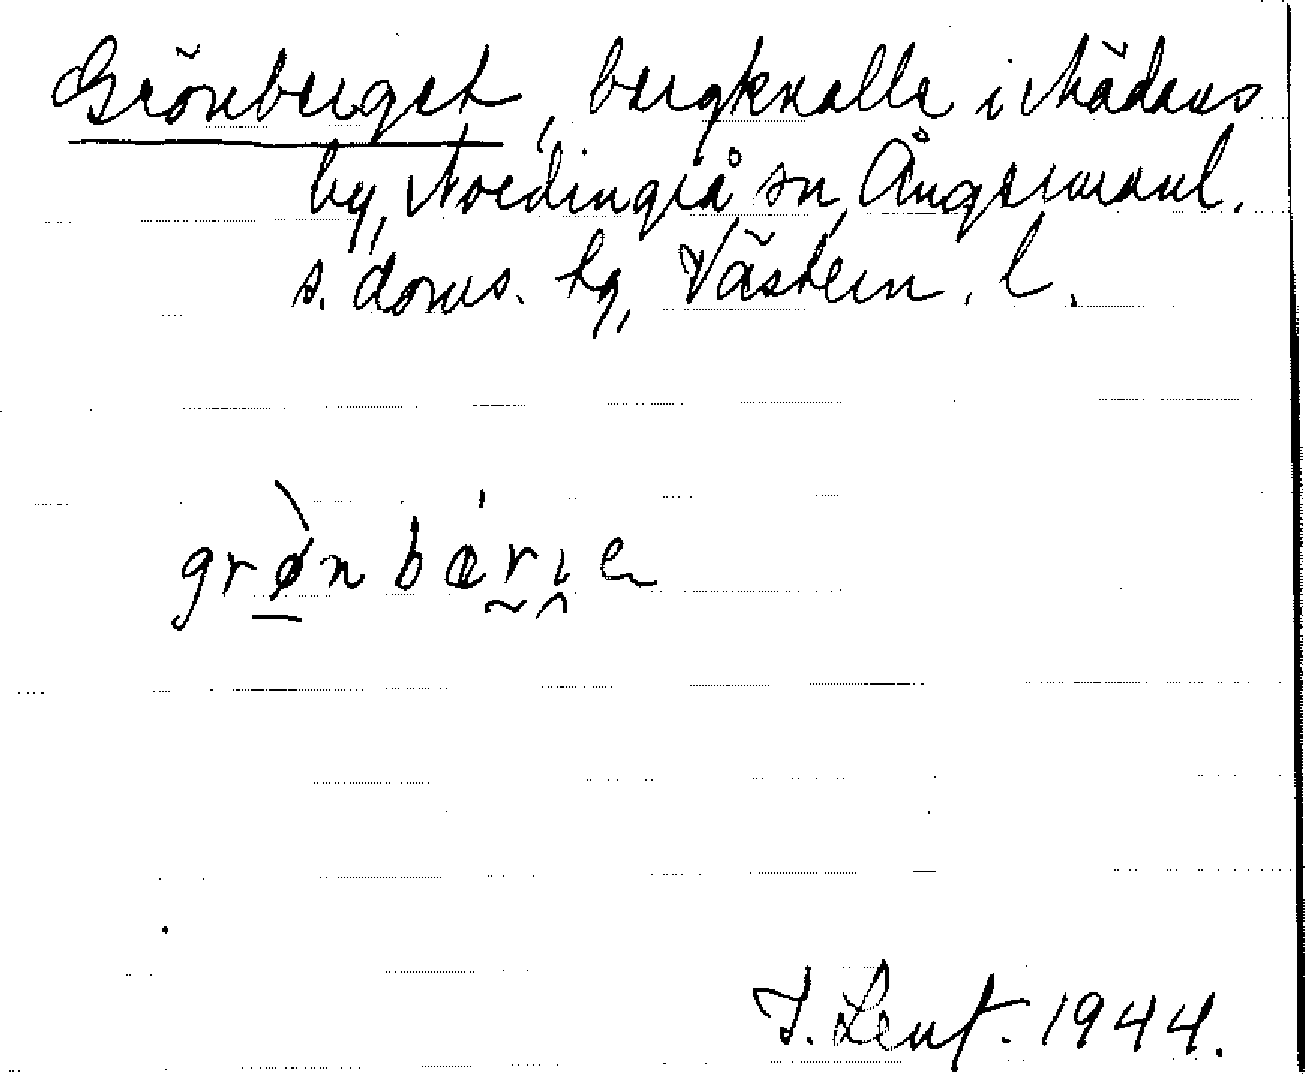 Grönberget, bergknalle i Mädans
by, Nordingrå sn, Ångermanl.
s. doms. tg, Västern. l.
grø̀nbærıe
J. Leuf. 1944.